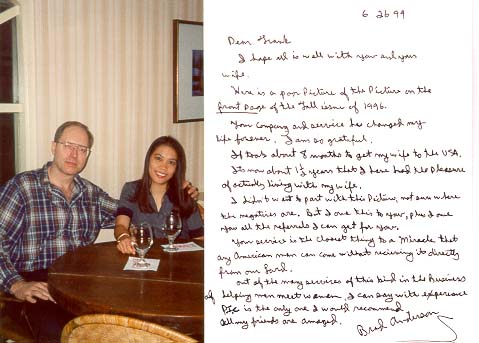 6 26 99
Dear Frank
I hope all is well with you and your
wife.
Here is a poor Picture of the Picture on the
front Page of the Fall issue of 1996.
Your Company and service has changed my
life forever. I am so grateful.
It took about 8 months to get my wife to the USA.
It's now about 1½ years that I have had the Pleasure
of actually living with my wife.
I didn't want to part with this Picture, not sure where
the negatives are. But I owe this to you, plus I owe
you all the referrals I can get for you.
Your service is the closest thing to a Miracle that
any American men can come without recieving it directly
from our Lord.
out of the many services of this kind in the Business
of helping men meet women, I can say with experience
is the only one I would recommend
all my friends are amazed.
Brad Anderson